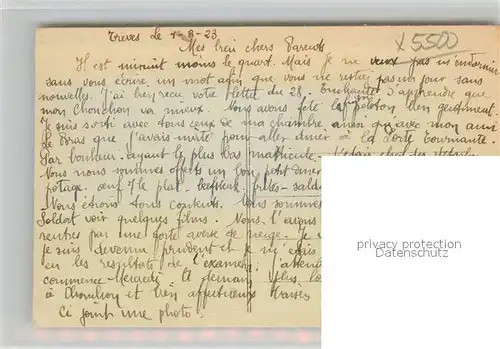 Treves le 1-8-23
X5500
Mes bien chers Parents
Il est minuit moins le quart. Mais je ne veux pas m'endormir
sans vous écrire un mot afin que vous ne restiez pas un jour sans
nouvelles. J'ai bien reçu votre lettre du 28. Enchanté d'apprendre que
mon Chonchon va mieux. Nous avons fêté le peloton bien gentiment.
Je suis sorti avec tous ceux de ma chambre ainsi qu'avec mon ami
de que j'avais invité pour aller dîner à la Porte
Par bonheur ayant le plus bas matricule j'étais chef de
Nous nous sommes offerts un bon petit diner
potage. oeuf s/ le plat. beefsteak. frites - salade
Nous étions tous contents. Nous sommes
Soldat voir quelques films. Nous l'avons
rentrés par une forte averse de neige. Je
je suis devenu prudent et je m'étais
eu les résultats de l'examen.
commence Mercredi. A demain plus
à Chonchon et bien affectueux baisers
Ci joint une photo.
privacy protection
Datenschutz